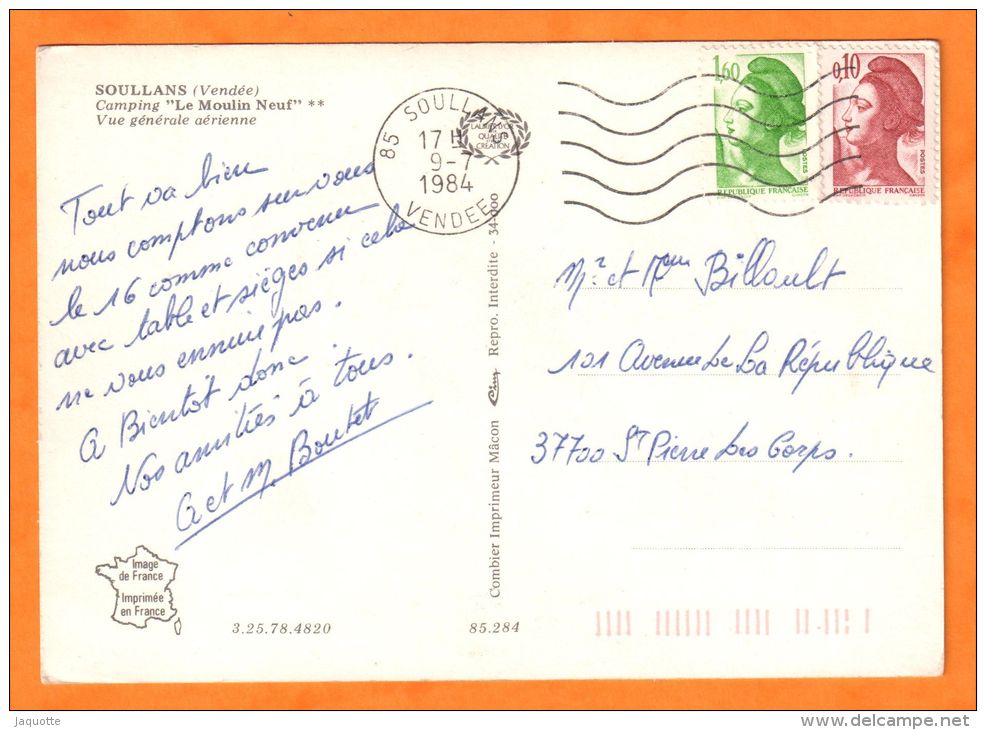 SOULLANS (Vendée)
Camping "Le Moulin Neuf" **
Vue générale aérienne
Tout va bien
nous comptons sur vous
le 16 comme convenu
avec table et sièges si cela
ne vous ennuie pas.
A Bientôt donc.
Nos amitiés à tous.
G et M. Boutet
85 SOULLANS
17 H
9-7
1984
VENDEE
LAURIER D'OR
QUALITÉ
CRÉATION
1,60
POSTES
REPUBLIQUE FRANÇAISE
0,10
POSTES
REPUBLIQUE FRANÇAISE
Mr et Mme Billault
101 Avenue de La République
37700 St Pierre des Corps.
Combier Imprimeur Mâcon Cim Repro. Interdite - 34-000
Image
de France
Imprimée
en France
3.25.78.4820
85.284
Jaquotte
http://www.delcampe.net